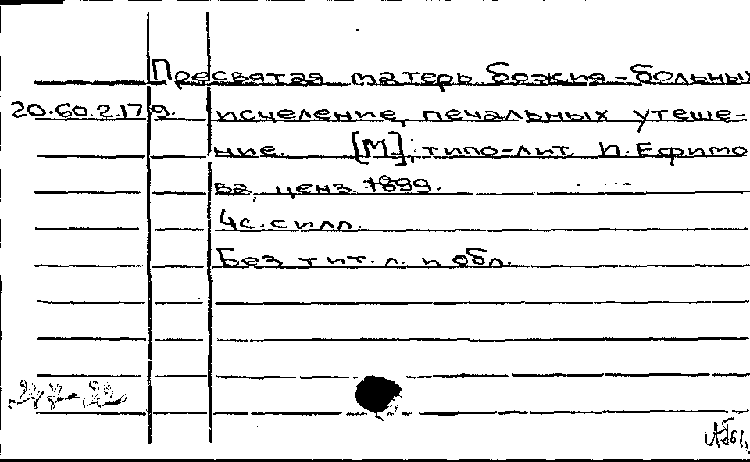 Пресвятая матерь божия - больных
20.60.2.179. исцеление, печальных утеше-
ние. [М], типо-лит. И. Ефимо
ва, ценз. 1899.
4 с. с илл.
Без тит. л. и обл.